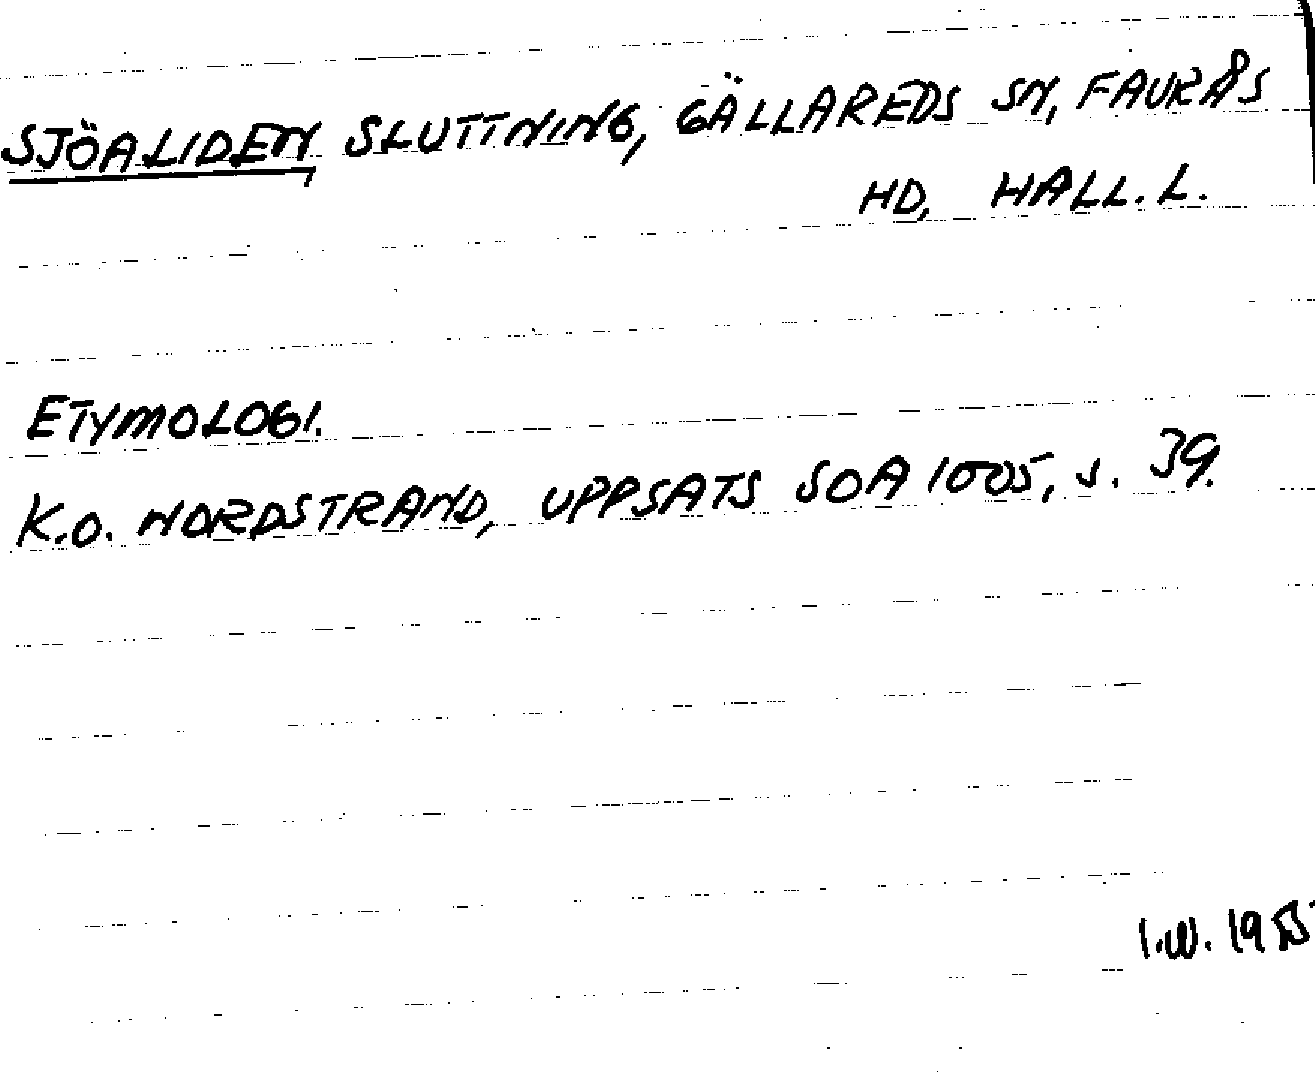 SJÖALIDEN, SLUTTNING, GÄLLAREDS SN, FAURÅS
HD, HALL. L.
ETYMOLOGI.
K.O. NORDSTRAND, UPPSATS SOA 1005, s. 39.
I.W.